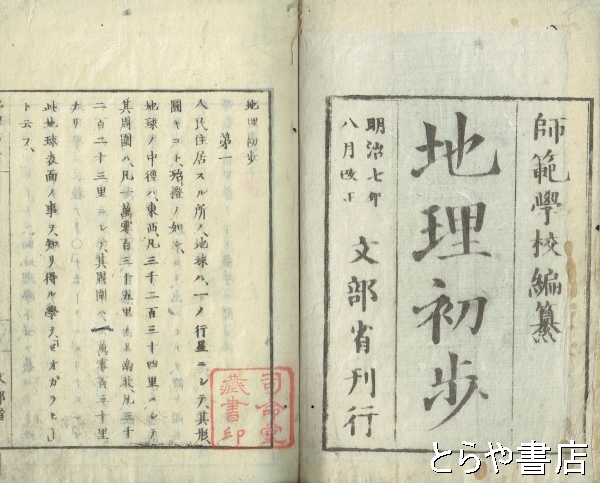 師範學校編纂
地理初歩
明治七年
八月改正
文部省刊行
地理初歩
第一
人民住居スル所ノ地球ハ、一ノ行星ニシテ、其形
圓キコト、殆橙ノ如シ、
地球ノ中徑ハ、東西、凡三千二百三十四里ニシテ
其周圍ハ、凡一萬零百三十五里
南北、凡三千
二百二十三里ニシテ、其周圍ハ、一萬零百三十里
ナリ
此地球表面ノ事ヲ知リ得ル學ヲ、「ゼオガラヒー」
ト云フ、
司命堂
藏書印
とらや書店